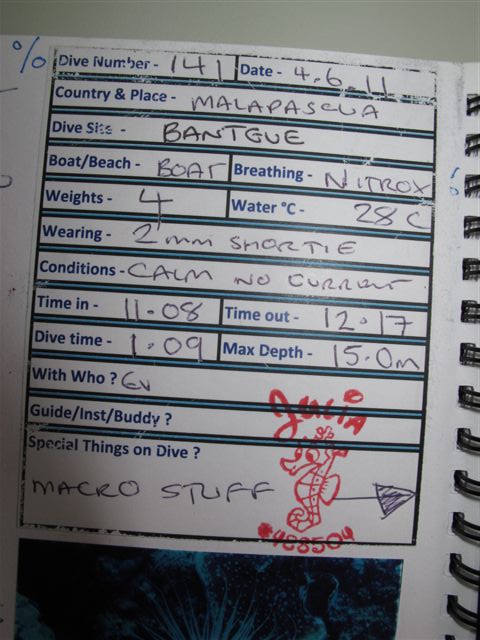 %
Dive Number - 141 Date - 4.6.11
Country & Place - MALAPASCUA
Dive Site - BANTGUE
Boat/Beach - BOAT Breathing - NITROX
Weights - 4 Water °C - 28C
Wearing - 2mm SHORTIE
Conditions - CALM NO CURRENT.
Time in - 11.08 Time out - 12.17
Dive time - 1.09 Max Depth - 15.0m
With Who ? Ev
Guide/Inst/Buddy ? Julia
Special Things on Dive ?
MACRO STUFF
*468504